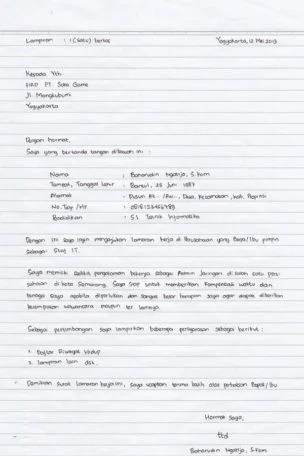 Lampiran : 1 (Satu) berkas
Yogyakarta, 12 Mei 2013
Kepada Yth.
HRD PT. Soto Gome
Jl. Mangkubumi
Yogyakarta
Dengan hormat,
Saya yang bertanda tangan dibawah ini :
Nama : Baharudin Ngatrjo, S.Kom
Tempat, Tanggal lahir : Bantul, 25 Juni 1987
Alamat : Dusun Rt.. /Rw.., Desa, Kecamatan, Kab, Propinsi
No. Tlp /Hp : 0818123456789
Pendidikan : S.1 Teknik Informatika
Dengan ini saya ingin mengajukan lamaran kerja di Perusahaan yang Bapak/Ibu pimpin
sebagai Staf IT.
Saya memiliki sedikit pengalaman bekerja sebagai Admin Jaringan di salah satu peru-
sahaan di kota Semarang. Saya siap untuk memberikan kompensasi waktu dan
tenaga saya apabila diperlukan dan sangat besar harapan saya agar dapat diberikan
kesempatan wawancara maupun tes lainnya.
Sebagai pertimbangan saya lampirkan beberapa persyaratan sebagai berikut :
1. Daftar Riwayat Hidup
2. lampiran lain dsb.
Demikian surat lamaran kerja ini, saya ucapkan terima kasih atas perhatian Bapak/Ibu
Hormat Saya,
ttd
Baharudin Ngatrjo, S.Kom